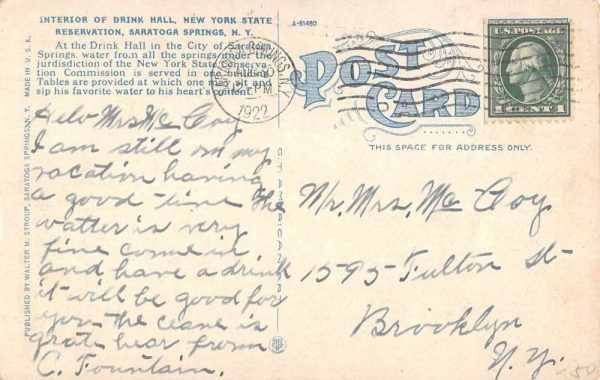 INTERIOR OF DRINK HALL, NEW YORK STATE
RESERVATION, SARATOGA SPRINGS, N. Y.
At the Drink Hall in the City of Saratoga
Springs, water from all the springs under the
jurdisdiction of the New York State Conserva-
tion Commission is served in one building
Tables are provided at which one may sit and
sip his favorite water to his heart's content.
Helo Mrs Mc Coy
I am still on my
vacation having
a good time the
watter is very
fine come in
and have a drink
it will be good for
you the ceane is
grat hear from
C. Fountain.
MADE IN U.S.A.
PUBLISHED BY WALTER M. STROUP, SARATOGA SPRINGS, N. Y.
A-91490
POST
CARD
THIS SPACE FOR ADDRESS ONLY.
1922
U.S. POSTAGE
1 CENT 1
Mr. Mrs. Mc Coy
1595 Fulton St
Brooklyn
N.Y.
50